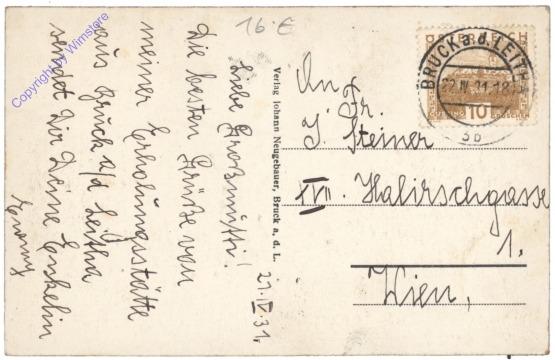 16.€
Copyright by Wimstore
Liebe Großmutti!
Die besten Grüße von
meiner Erholungsstätte
aus Bruck a/d Leitha
sendet Dir Deine Enkelin
21.IV.31.
Verlag Johann Neugebauer, Bruck a. d. L.
ÖSTERREICH
10
GROSCHEN
BRUCK a.d. LEITHA
22.IV.31.18
3b
An
Fr.
J. Steiner
XVII. Halirschgasse
1.
Wien,